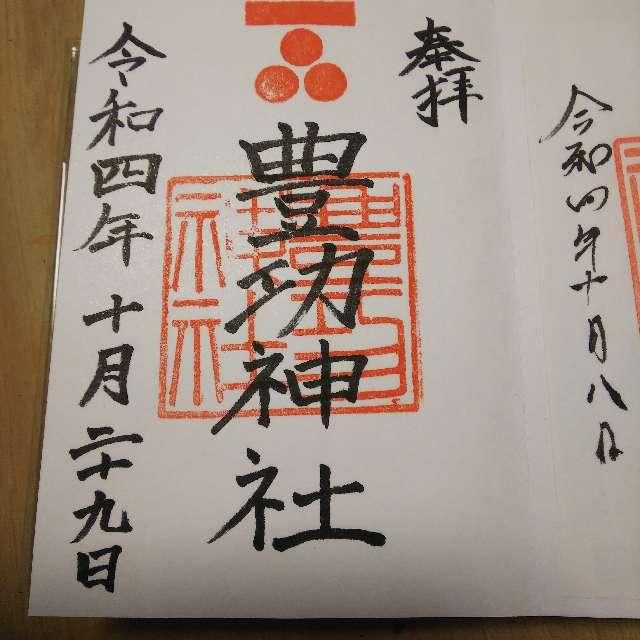 令和四年十月八日
奉拝
豊功神社
令和四年十月二十九日